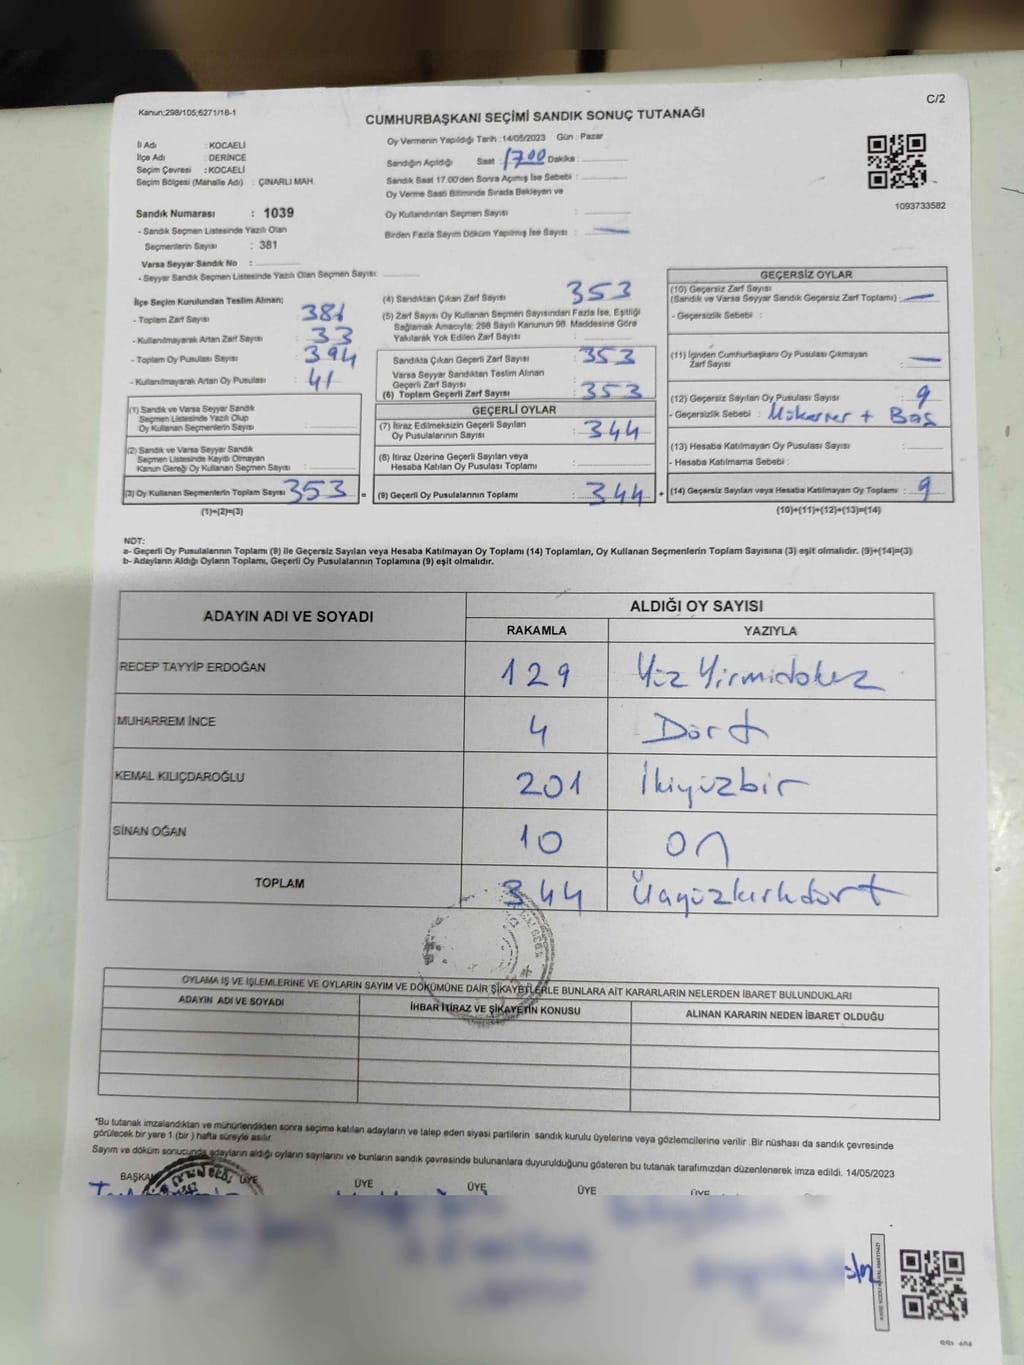 Kanun;298/105;6271/18-1
C/2
CUMHURBAŞKANI SEÇİMİ SANDIK SONUÇ TUTANAĞI
İl Adı : KOCAELİ
İlçe Adı : DERİNCE
Seçim Çevresi : KOCAELİ
Seçim Bölgesi (Mahalle Adı) : ÇINARLI MAH.
Oy Vermenin Yapıldığı Tarih : 14/05/2023 Gün : Pazar
Sandığın Açıldığı Saat : 1700 Dakika :
Sandık Saat 17.00'den Sonra Açımış İse Sebebi :
Oy Verme Saati Bitiminde Sırada Bekleyen ve
Oy Kullandırılan Seçmen Sayısı :
Birden Fazla Sayım Döküm Yapılmış İse Sayısı : —
1093733582
Sandık Numarası : 1039
- Sandık Seçmen Listesinde Yazılı Olan
Seçmenlerin Sayısı : 381
Varsa Seyyar Sandık No :
- Seyyar Sandık Seçmen Listesinde Yazılı Olan Seçmen Sayısı:
İlçe Seçim Kurulundan Teslim Alınan;
- Toplam Zarf Sayısı :
- Kullanılmayarak Artan Zarf Sayısı : 33
- Toplam Oy Pusulası Sayısı : 394
- Kullanılmayarak Artan Oy Pusulası : 41
(1) Sandık ve Varsa Seyyar Sandık
Seçmen Listesinde Yazılı Olup
Oy Kullanan Seçmenlerin Sayısı :
(2) Sandık ve Varsa Seyyar Sandık
Seçmen Listesinde Kayıtlı Olmayan
Kanun Gereği Oy Kullanan Seçmen Sayısı :
(3) Oy Kullanan Seçmenlerin Toplam Sayısı 353 =
(1)+(2)=(3)
(4) Sandıktan Çıkan Zarf Sayısı : 353
(5) Zarf Sayısı Oy Kullanan Seçmen Sayısından Fazla İse, Eşitliği
Sağlamak Amacıyla; 298 Sayılı Kanunun 98. Maddesine Göre
Yakılarak Yok Edilen Zarf Sayısı :
Sandıkta Çıkan Geçerli Zarf Sayısı : 353
Varsa Seyyar Sandıktan Teslim Alınan
Geçerli Zarf Sayısı :
(6) Toplam Geçerli Zarf Sayısı : 353
GEÇERLİ OYLAR
(7) İtiraz Edilmeksizin Geçerli Sayılan
Oy Pusulalarının Sayısı : 344
(8) İtiraz Üzerine Geçerli Sayılan veya
Hesaba Katılan Oy Pusulası Toplamı :
(9) Geçerli Oy Pusulalarının Toplamı : 344 +
GEÇERSİZ OYLAR
(10) Geçersiz Zarf Sayısı
(Sandık ve Varsa Seyyar Sandık Geçersiz Zarf Toplamı) : —
- Geçersizlik Sebebi :
(11) İçinden Cumhurbaşkanı Oy Pusulası Çıkmayan
Zarf Sayısı : —
(12) Geçersiz Sayılan Oy Pusulası Sayısı : 9
- Geçersizlik Sebebi : Mükerrer + Boş
(13) Hesaba Katılmayan Oy Pusulası Sayısı :
- Hesaba Katılmama Sebebi :
(14) Geçersiz Sayılan veya Hesaba Katılmayan Oy Toplamı : 9
(10)+(11)+(12)+(13)=(14)
NOT:
a- Geçerli Oy Pusulalarının Toplamı (9) ile Geçersiz Sayılan veya Hesaba Katılmayan Oy Toplamı (14) Toplamları, Oy Kullanan Seçmenlerin Toplam Sayısına (3) eşit olmalıdır. (9)+(14)=(3)
b- Adayların Aldığı Oyların Toplamı, Geçerli Oy Pusulalarının Toplamına (9) eşit olmalıdır.
ADAYIN ADI VE SOYADI
ALDIĞI OY SAYISI
RAKAMLA YAZIYLA
RECEP TAYYİP ERDOĞAN 129 Yüz Yirmidokuz
MUHARREM İNCE 4 Dört
KEMAL KILIÇDAROĞLU 201 İkiyüzbir
SİNAN OĞAN 10 on
TOPLAM 344 Üçyüzkırkdört
OYLAMA İŞ VE İŞLEMLERİNE VE OYLARIN SAYIM VE DÖKÜMÜNE DAİR ŞİKAYETLERLE BUNLARA AİT KARARLARIN NELERDEN İBARET BULUNDUKLARI
ADAYIN ADI VE SOYADI İHBAR İTİRAZ VE ŞİKAYETİN KONUSU ALINAN KARARIN NEDEN İBARET OLDUĞU
*Bu tutanak imzalandıktan ve mühürlendikten sonra seçime katılan adayların ve talep eden siyasi partilerin sandık kurulu üyelerine veya gözlemcilerine verilir .Bir nüshası da sandık çevresinde
görülecek bir yere 1 (bir ) hafta süreyle asılır.
Sayım ve döküm sonucunda adayların aldığı oyların sayılarını ve bunların sandık çevresinde bulunanlara duyurulduğunu gösteren bu tutanak tarafımızdan düzenlenerek imza edildi. 14/05/2023
BAŞKAN ÜYE ÜYE ÜYE ÜYE ÜYE